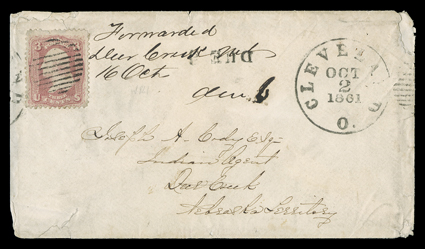 Forwarded
Deer Creek
16 Oct
DUE
Due 6
CLEVELAND
OCT
2
1861
O.
3
U S
Joseph A. Cody Esq
Indian Agent
Deer Creek
Nebraska Territory